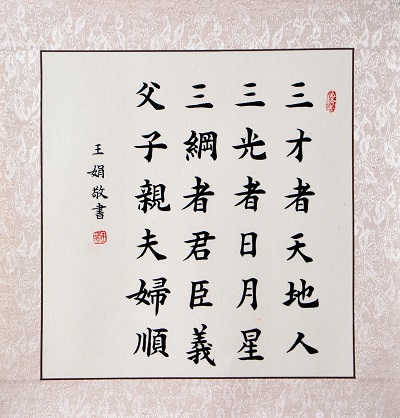 三才者天地人
三光者日月星
三綱者君臣義
父子親夫婦順
王娟敬書